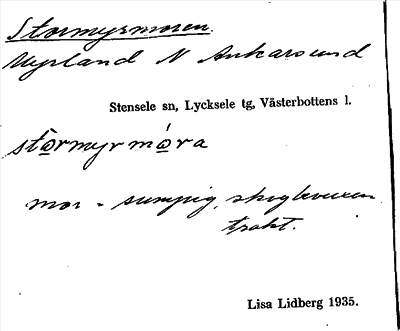 Stormyrmoren.
Myrland N Ankarsund
Stensele sn, Lycksele tg, Västerbottens l.
stòrmyrmóra
mor - sumpig, skogbevuxen
trakt.
Lisa Lidberg 1935.